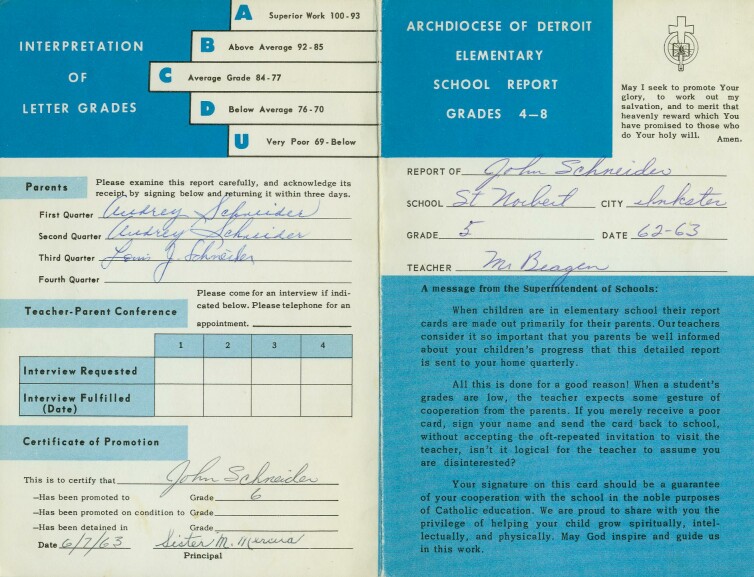 INTERPRETATION
OF
LETTER GRADES
A Superior Work 100-93
B Above Average 92-85
C Average Grade 84-77
D Below Average 76-70
U Very Poor 69-Below
Parents
Please examine this report carefully, and acknowledge its
receipt, by signing below and returning it within three days.
First Quarter Audrey Schneider
Second Quarter Audrey Schneider
Third Quarter Louis J. Schneider
Fourth Quarter
Teacher-Parent Conference
Please come for an interview if indi-
cated below. Please telephone for an
appointment.
1 2 3 4
Interview Requested
Interview Fulfilled
(Date)
Certificate of Promotion
This is to certify that John Schneider
—Has been promoted to Grade 6
—Has been promoted on condition to Grade
—Has been detained in Grade
Date 6/7/63 Sister M.
Principal
ARCHDIOCESE OF DETROIT
ELEMENTARY
SCHOOL REPORT
GRADES 4—8
May I seek to promote Your
glory, to work out my
salvation, and to merit that
heavenly reward which You
have promised to those who
do Your holy will. Amen.
REPORT OF John Schneider
SCHOOL St Norbert CITY Inkster
GRADE 5 DATE 62-63
TEACHER Mr Beagen
A message from the Superintendent of Schools:
When children are in elementary school their report
cards are made out primarily for their parents. Our teachers
consider it so important that you parents be well informed
about your children's progress that this detailed report
is sent to your home quarterly.
All this is done for a good reason! When a student's
grades are low, the teacher expects some gesture of
cooperation from the parents. If you merely receive a poor
card, sign your name and send the card back to school,
without accepting the oft-repeated invitation to visit the
teacher, isn't it logical for the teacher to assume you
are disinterested?
Your signature on this card should be a guarantee
of your cooperation with the school in the noble purposes
of Catholic education. We are proud to share with you the
privilege of helping your child grow spiritually, intel-
lectually, and physically. May God inspire and guide us
in this work.